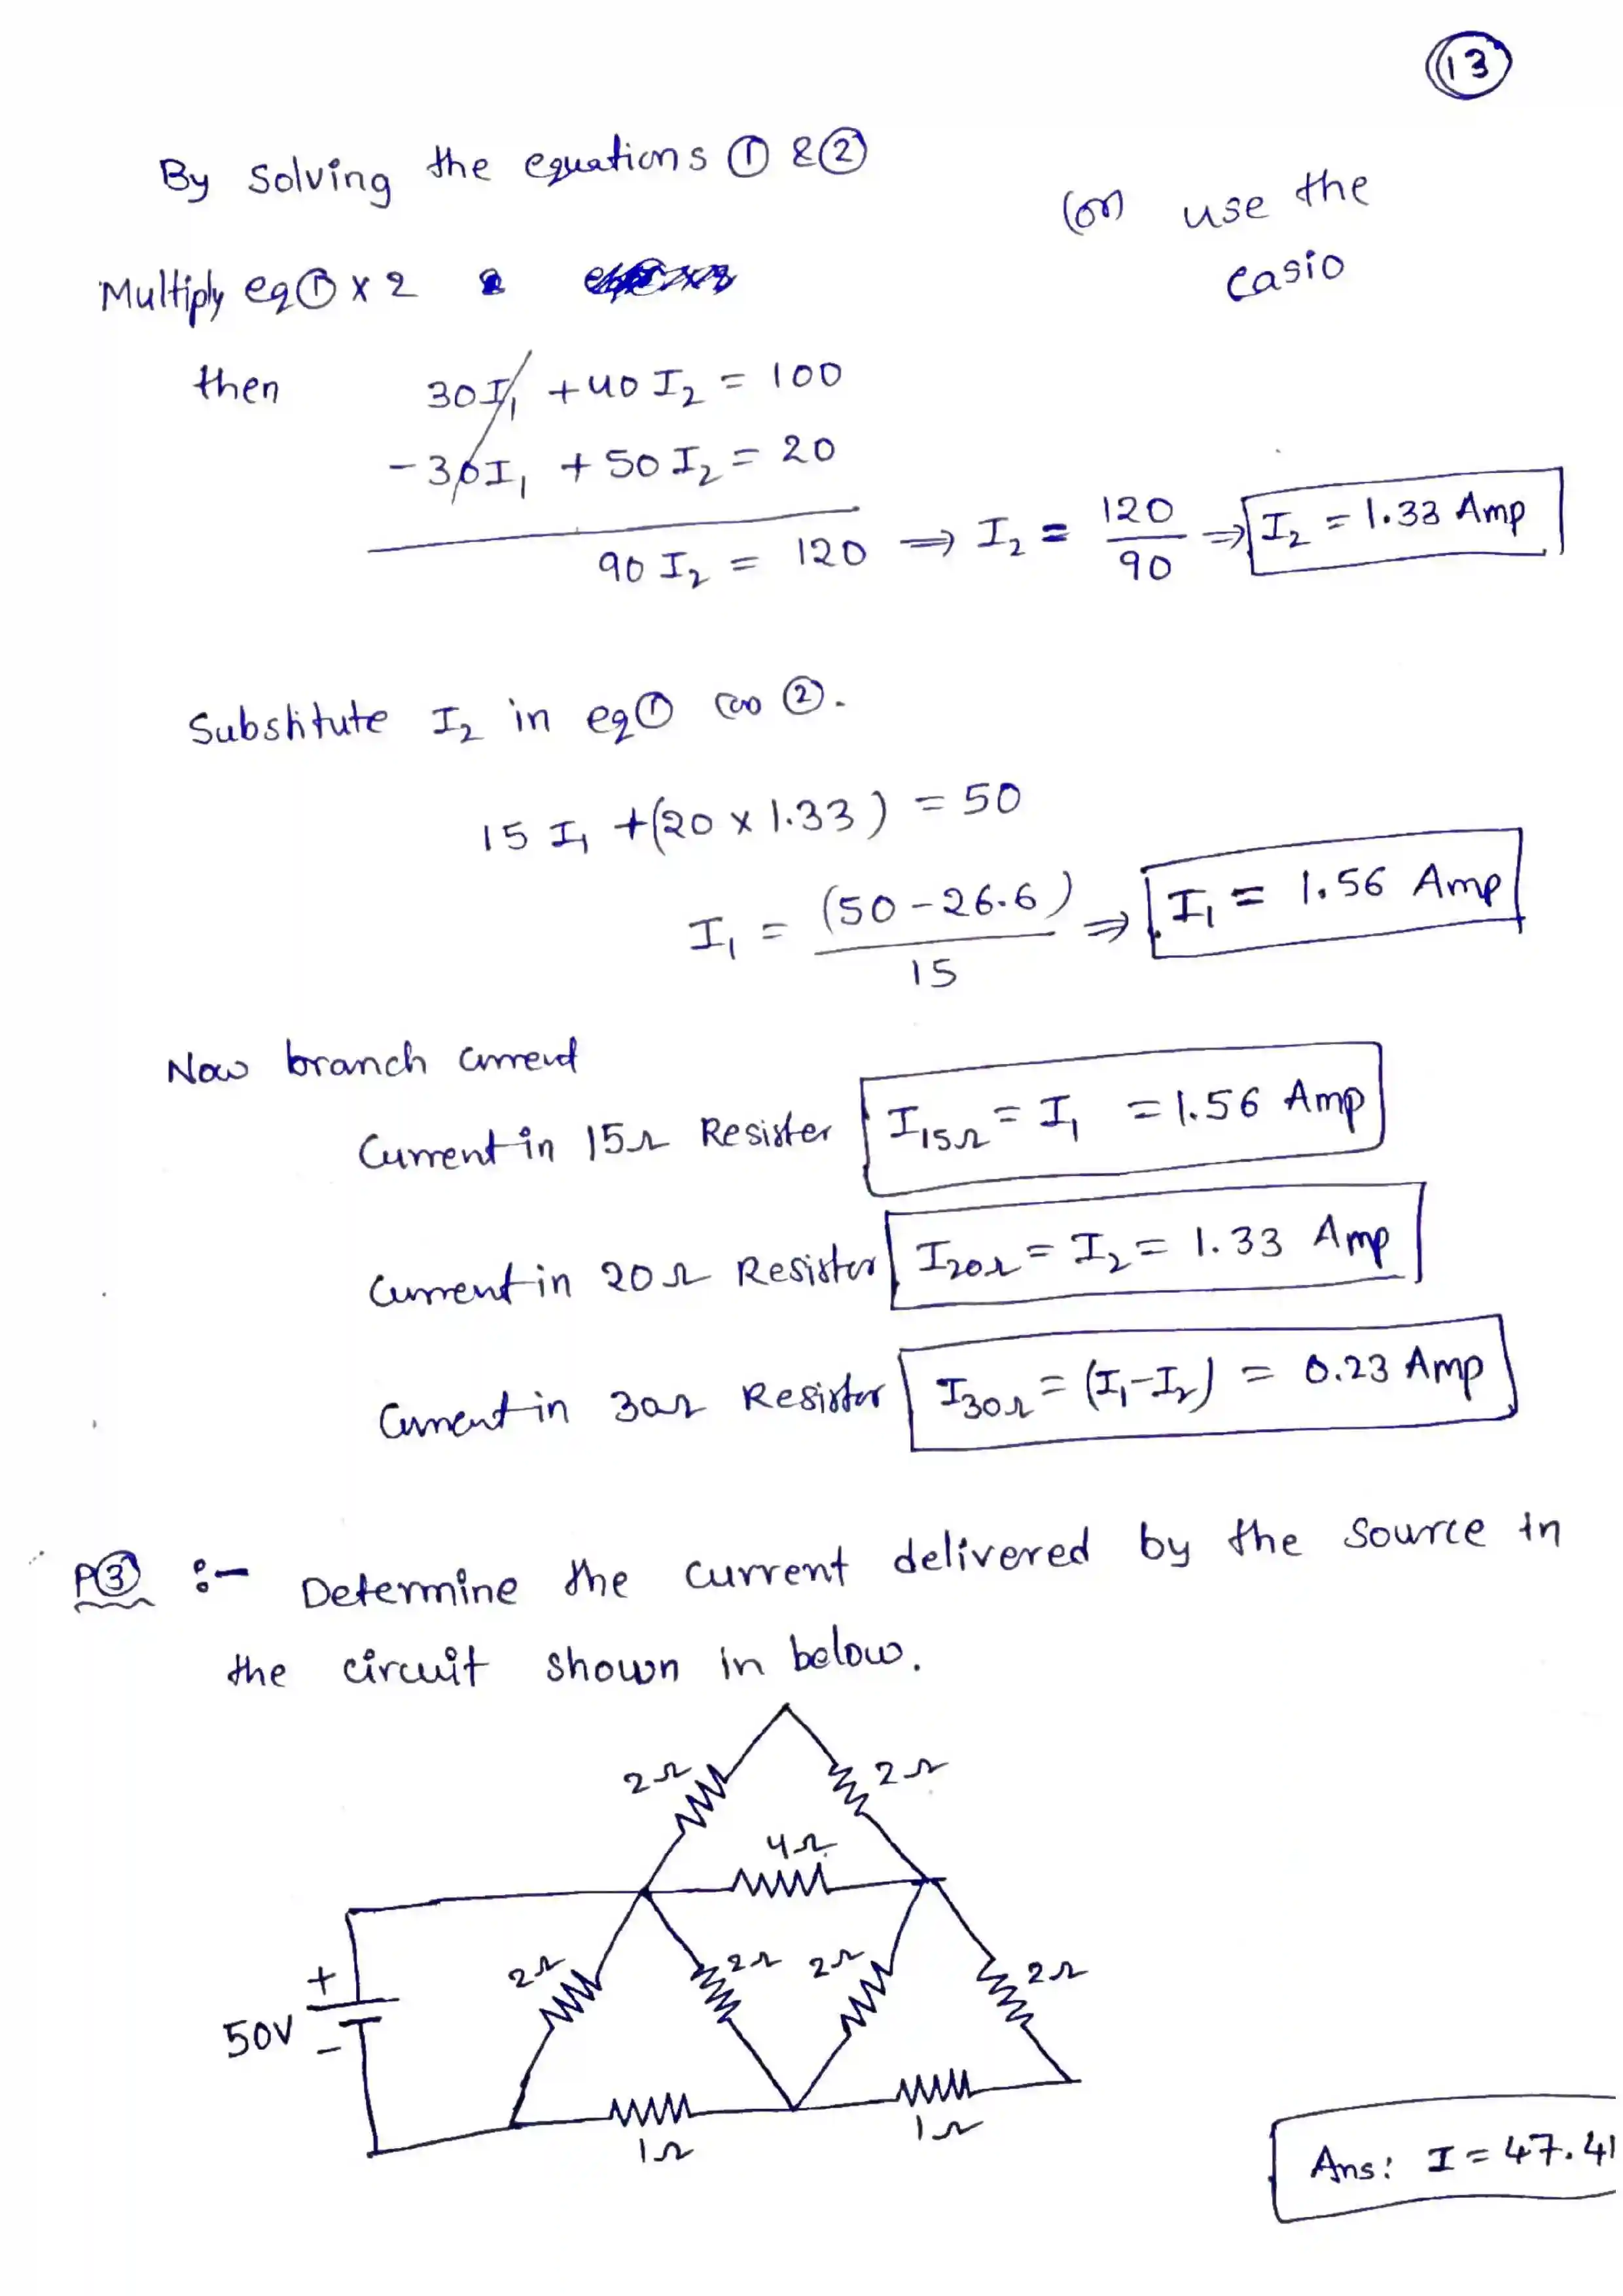 13
By Solving the equations ① & ②
(or) use the
casio
Multiply eq① x 2 &
then 30I₁ + 40 I₂ = 100
-30I₁ + 50 I₂ = 20
90 I₂ = 120 ⇒ I₂ = 120/90 ⇒ I₂ = 1.33 Amp
Substitute I₂ in eq① (or) ②.
15 I₁ + (20 x 1.33) = 50
I₁ = (50 - 26.6)/15 ⇒ I₁ = 1.56 Amp
Now branch current
Current in 15Ω Resister I₁₅Ω = I₁ = 1.56 Amp
Current in 20Ω Resistor I₂₀Ω = I₂ = 1.33 Amp
Current in 30Ω Resistor I₃₀Ω = (I₁-I₂) = 0.23 Amp
P③ :- Determine the current delivered by the source in
the circuit shown in below.
2Ω 2Ω
4Ω
2Ω 2Ω 2Ω 2Ω
+
50V
-
1Ω 1Ω
Ans: I = 47.41